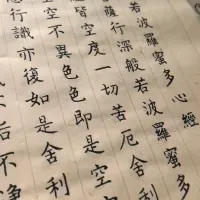 若波羅蜜多心經
薩行深般若波羅蜜多
皆空度一切苦厄舍利
空不異色色即是空
行識亦復如是舍利
不